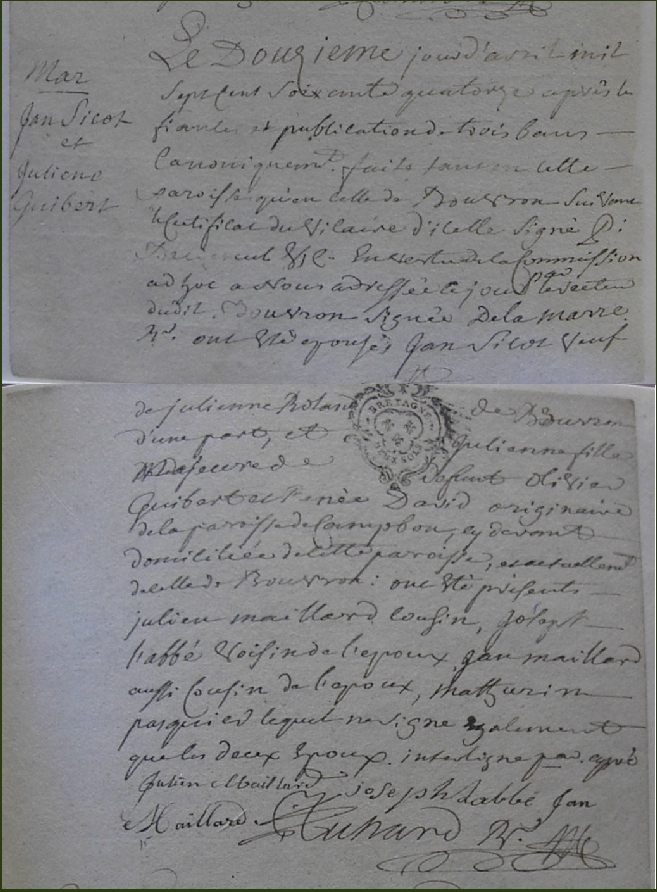 Mar
Jan Sicot
et
Juliene
Guibert
Le Douzieme jour d'avril mil
Sept Cent Soixante quatorze après les
fiancles et publication de trois bans
Canoniquemt. faits tant en celle
paroisse qu'en celle de Bouvron Suivant
le Certificat du Vicaire d'icelle Signé P:
Vic. En vertu de la Commission
ad hoc a Nous adressée le jour par le recteur
dudit Bouvron Signée Delamarre
Rr. ont Eté epousés Jan Sicot Veuf
de julienne Roland de Bouvron
d'une part, et Julienne fille
Majeure de defunt Olivier
Guibert et Renée David originaire
de la paroisse de Campbon, cy devant
domiciliée de cette paroisse, et actuellemt
de celle de Bouvron: ont Eté présents
julien maillard Cousin, Joseph
l'abbé Voisin de l'epoux, jan maillard
aussi Cousin de l'epoux, mathurin
pasquier lequel ne signe Egalement
que les deux Epoux. interligne par. approuvé
BRETAGNE
Julien Maillard joseph Labbé Jan
Maillard Rr.